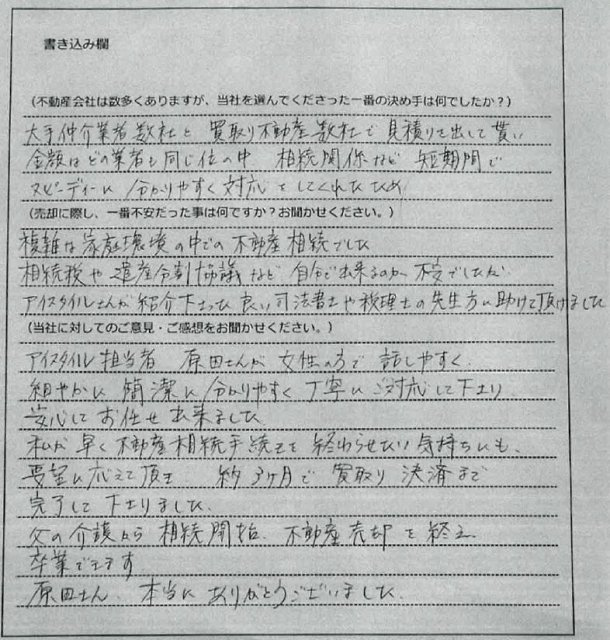 書き込み欄
(不動産会社は数多くありますが、当社を選んでくださった一番の決め手は何でしたか?)
大手仲介業者数社と 買取り不動産数社で見積りを出して貰い
金額はどの業者も同じ位の中 相続関係など 短期間で
スピーディーに 分かりやすく対応をしてくれたため
(売却に際し、一番不安だった事は何ですか?お聞かせください。)
複雑な家庭環境の中での不動産相続でした
相続税や遺産分割協議など 自分で出来るのか不安でしたが
アイスタイルさんが紹介下さった良い司法書士や税理士の先生方に助けて頂けました
(当社に対してのご意見・ご感想をお聞かせください。)
アイスタイル担当者 原田さんが女性の方で話しやすく、
細やかに 簡潔に 分かりやすく丁寧にご対応して下さり
安心してお任せ出来ました
私が早く不動産相続手続きを終わらせたい気持ちにも、
要望に応えて頂き 約3ヶ月で買取り決済まで
完了して下さりました。
父の介護から相続開始、不動産売却を終え
卒業できます
原田さん、本当にありがとうございました。